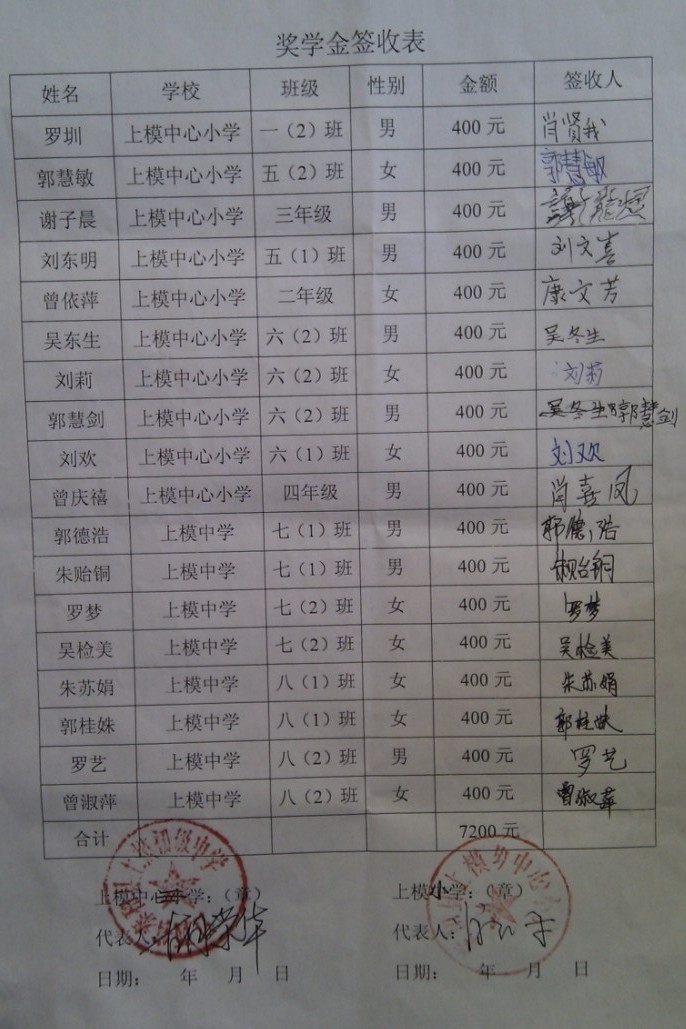 奖学金签收表
姓名 学校 班级 性别 金额 签收人
罗圳 上模中心小学 一（2）班 男 400 元 肖贤我
郭慧敏 上模中心小学 五（2）班 女 400 元 郭慧敏
谢子晨 上模中心小学 三年级 男 400 元
刘东明 上模中心小学 五（1）班 男 400 元 刘文喜
曾依萍 上模中心小学 二年级 女 400 元 康文芳
吴东生 上模中心小学 六（2）班 男 400 元 吴冬生
刘莉 上模中心小学 六（2）班 女 400 元 刘莉
郭慧剑 上模中心小学 六（2）班 男 400 元 吴冬生 郭慧剑
刘欢 上模中心小学 六（1）班 女 400 元 刘欢
曾庆禧 上模中心小学 四年级 男 400 元 肖喜凤
郭德浩 上模中学 七（1）班 男 400 元 郭德浩
朱贻铜 上模中学 七（1）班 男 400 元 朱贻铜
罗梦 上模中学 七（2）班 女 400 元 罗梦
吴检美 上模中学 七（2）班 女 400 元 吴检美
朱苏娟 上模中学 八（1）班 女 400 元 朱苏娟
郭桂姝 上模中学 八（1）班 女 400 元 郭桂姝
罗艺 上模中学 八（2）班 男 400 元 罗艺
曾淑萍 上模中学 八（2）班 女 400 元 曾淑萍
合计 7200 元
上模中心小学：（章） 上模小学：（章）
代表人： 代表人：
日期： 年 月 日 日期： 年 月 日